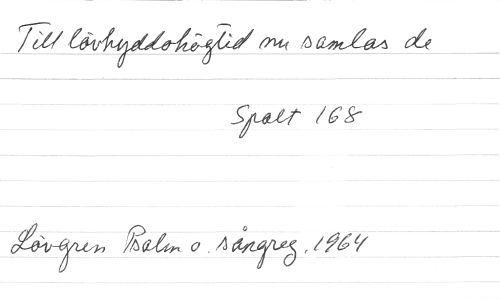 Till lövhyddohögtid nu samlas de
Spalt 168
Lövgren Psalm o. sångreg. 1964